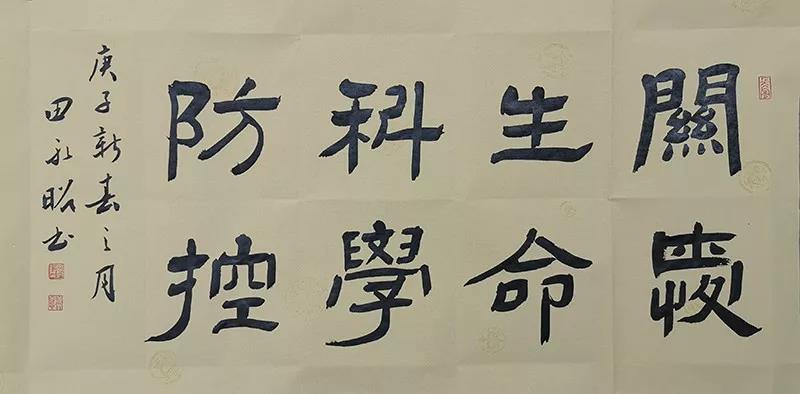 關愛
生命
科學
防控
庚子新春之月
田永昭书